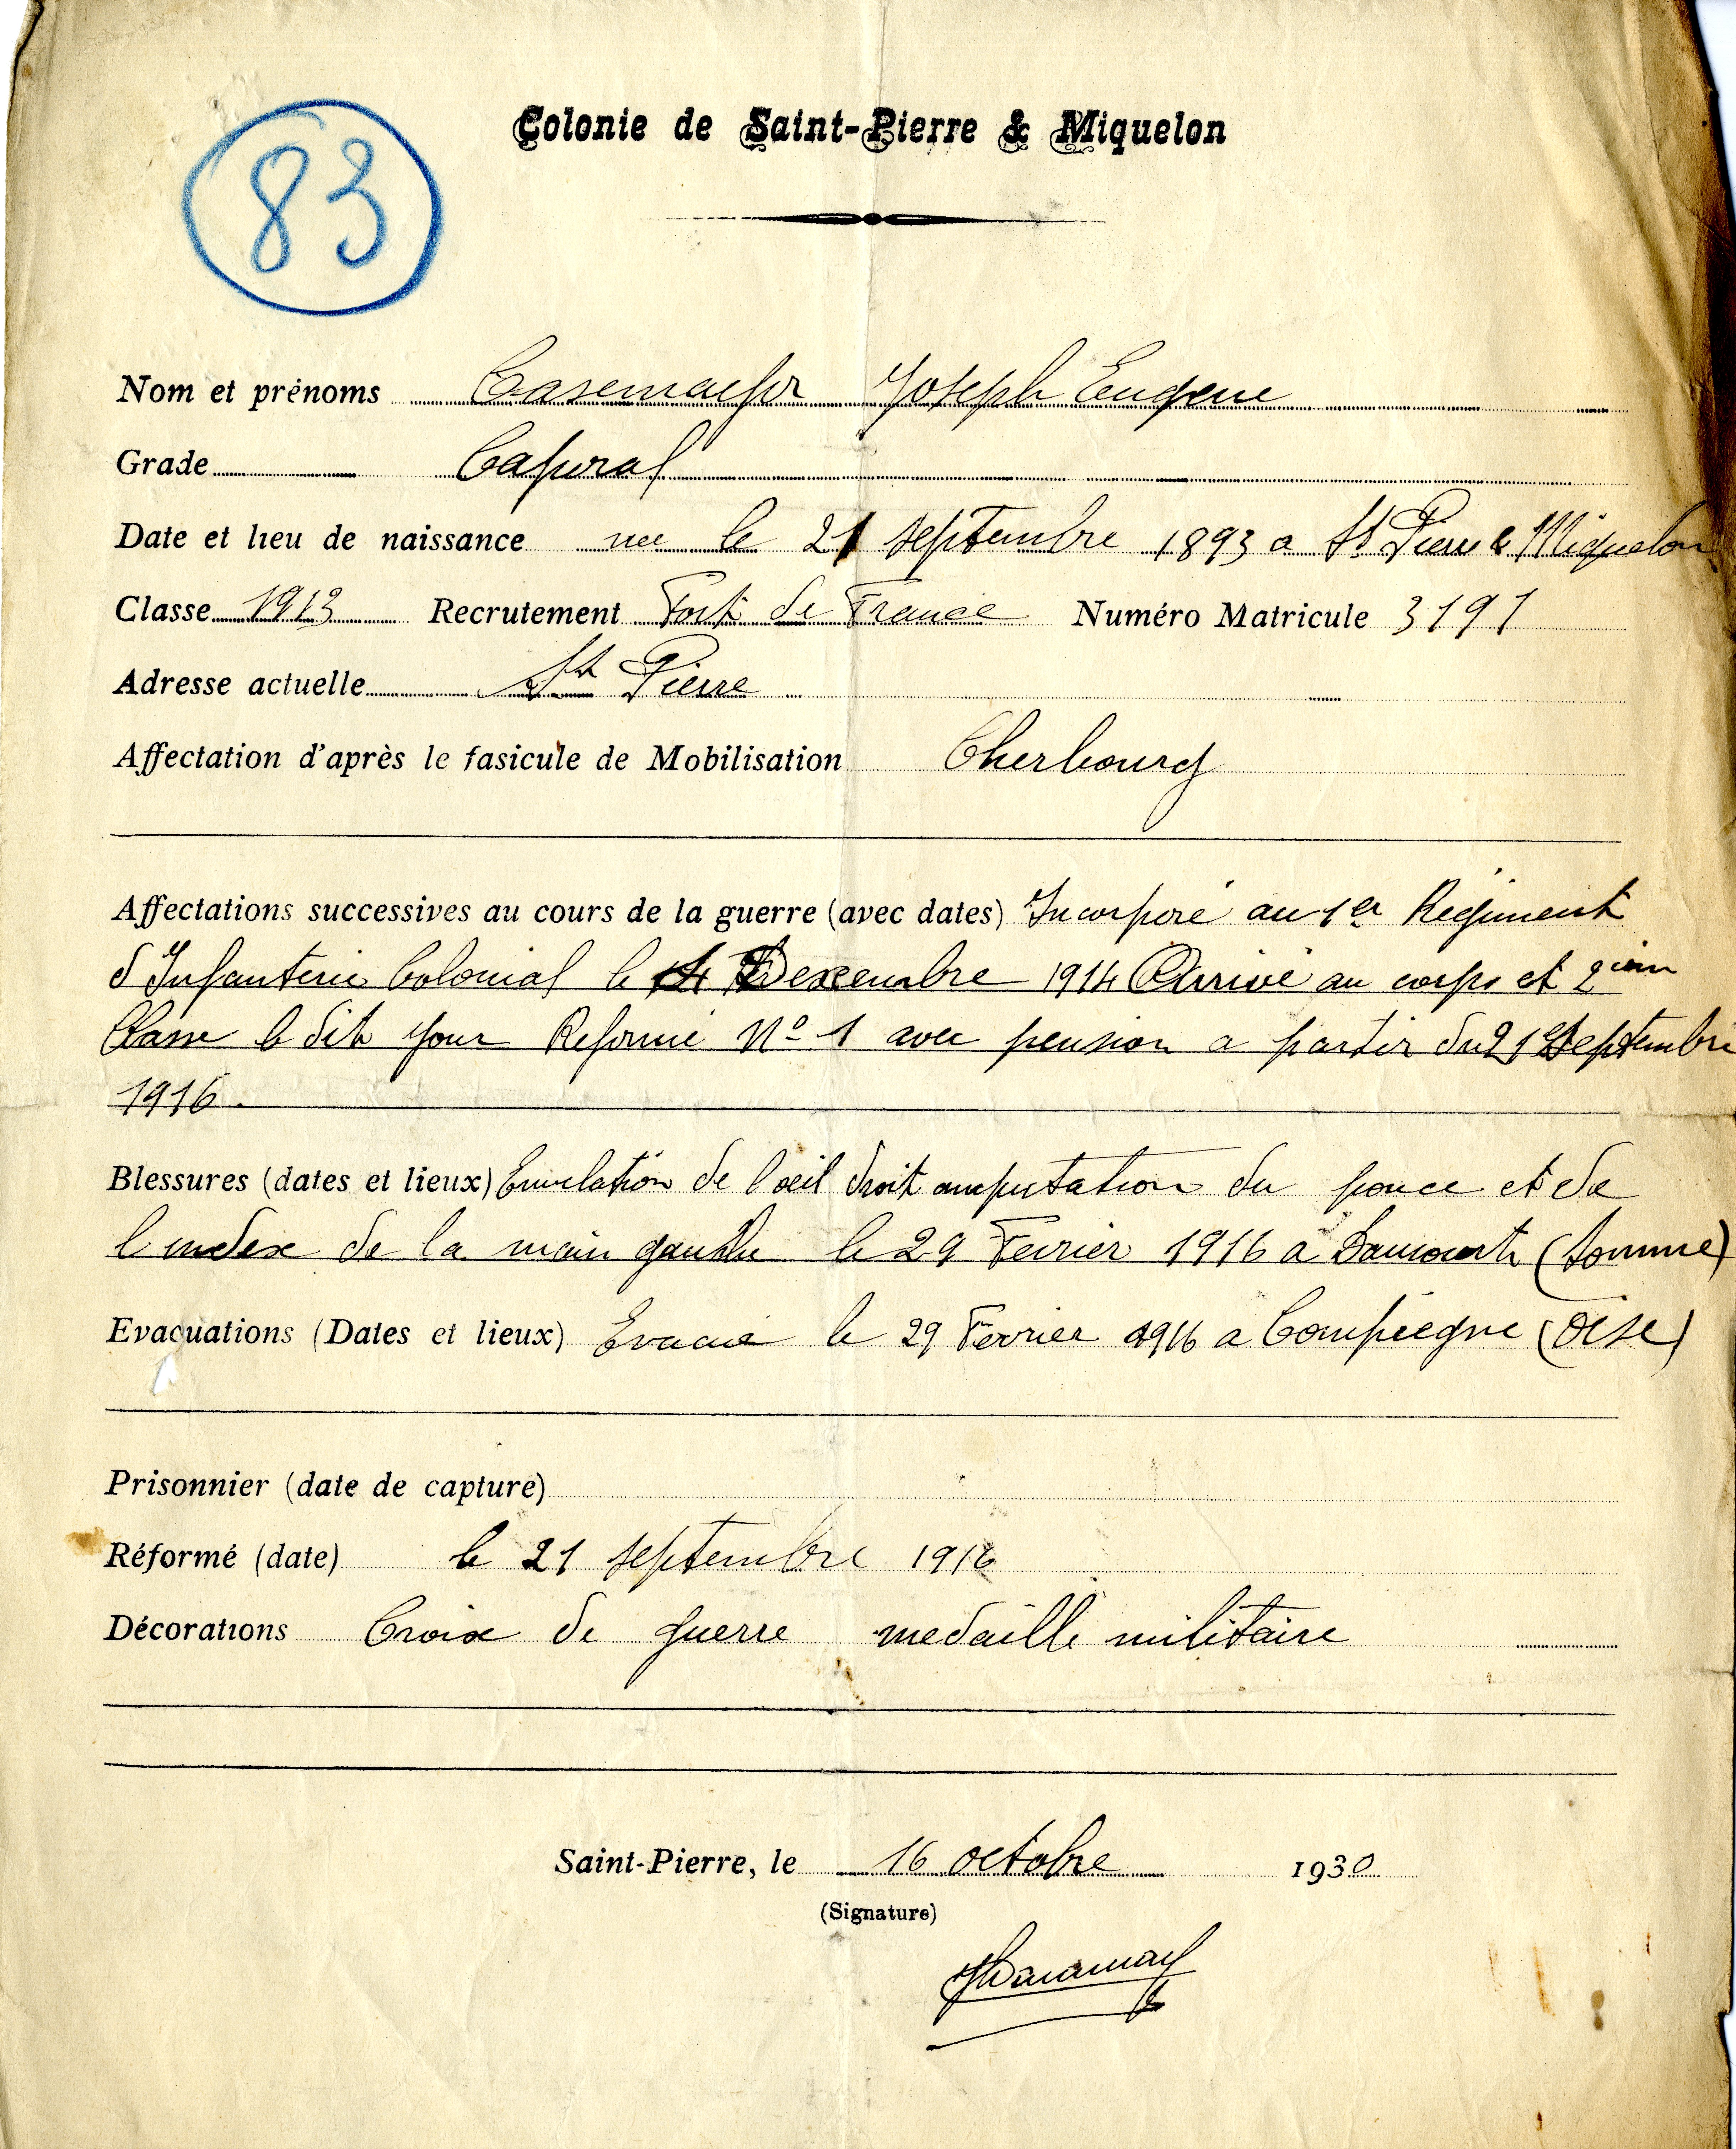 83
Colonie de Saint-Pierre & Miquelon
Nom et prénoms Casemajor Joseph Eugene
Grade Caporal
Date et lieu de naissance née le 21 septembre 1893 a St Pierre & Miquelon
Classe 1913 Recrutement Fort de France Numéro Matricule 3191
Adresse actuelle St Pierre
Affectation d'après le fasicule de Mobilisation Cherbourg
Affectations successives au cours de la guerre (avec dates) Incorporé au 1er Régiment
d Infanterie Colonial le 14 Decembre 1914 Arrivé au corps et 2ième
Classe le dit jour Reformé No 1 avec pension a partir du 21 Septembre
1916.
Blessures (dates et lieux) Enuclation de l oeil droit amputation du pouce et de
l index de la main gauche le 29 Fevrier 1916 a (Somme)
Evacuations (Dates et lieux) Evacué le 29 Fevrier 1916 a Compiegne (Oise)
Prisonnier (date de capture)
Réformé (date) le 21 septembre 1916
Décorations Croix de guerre medaille militaire
Saint-Pierre, le 16 octobre 1930
(Signature)